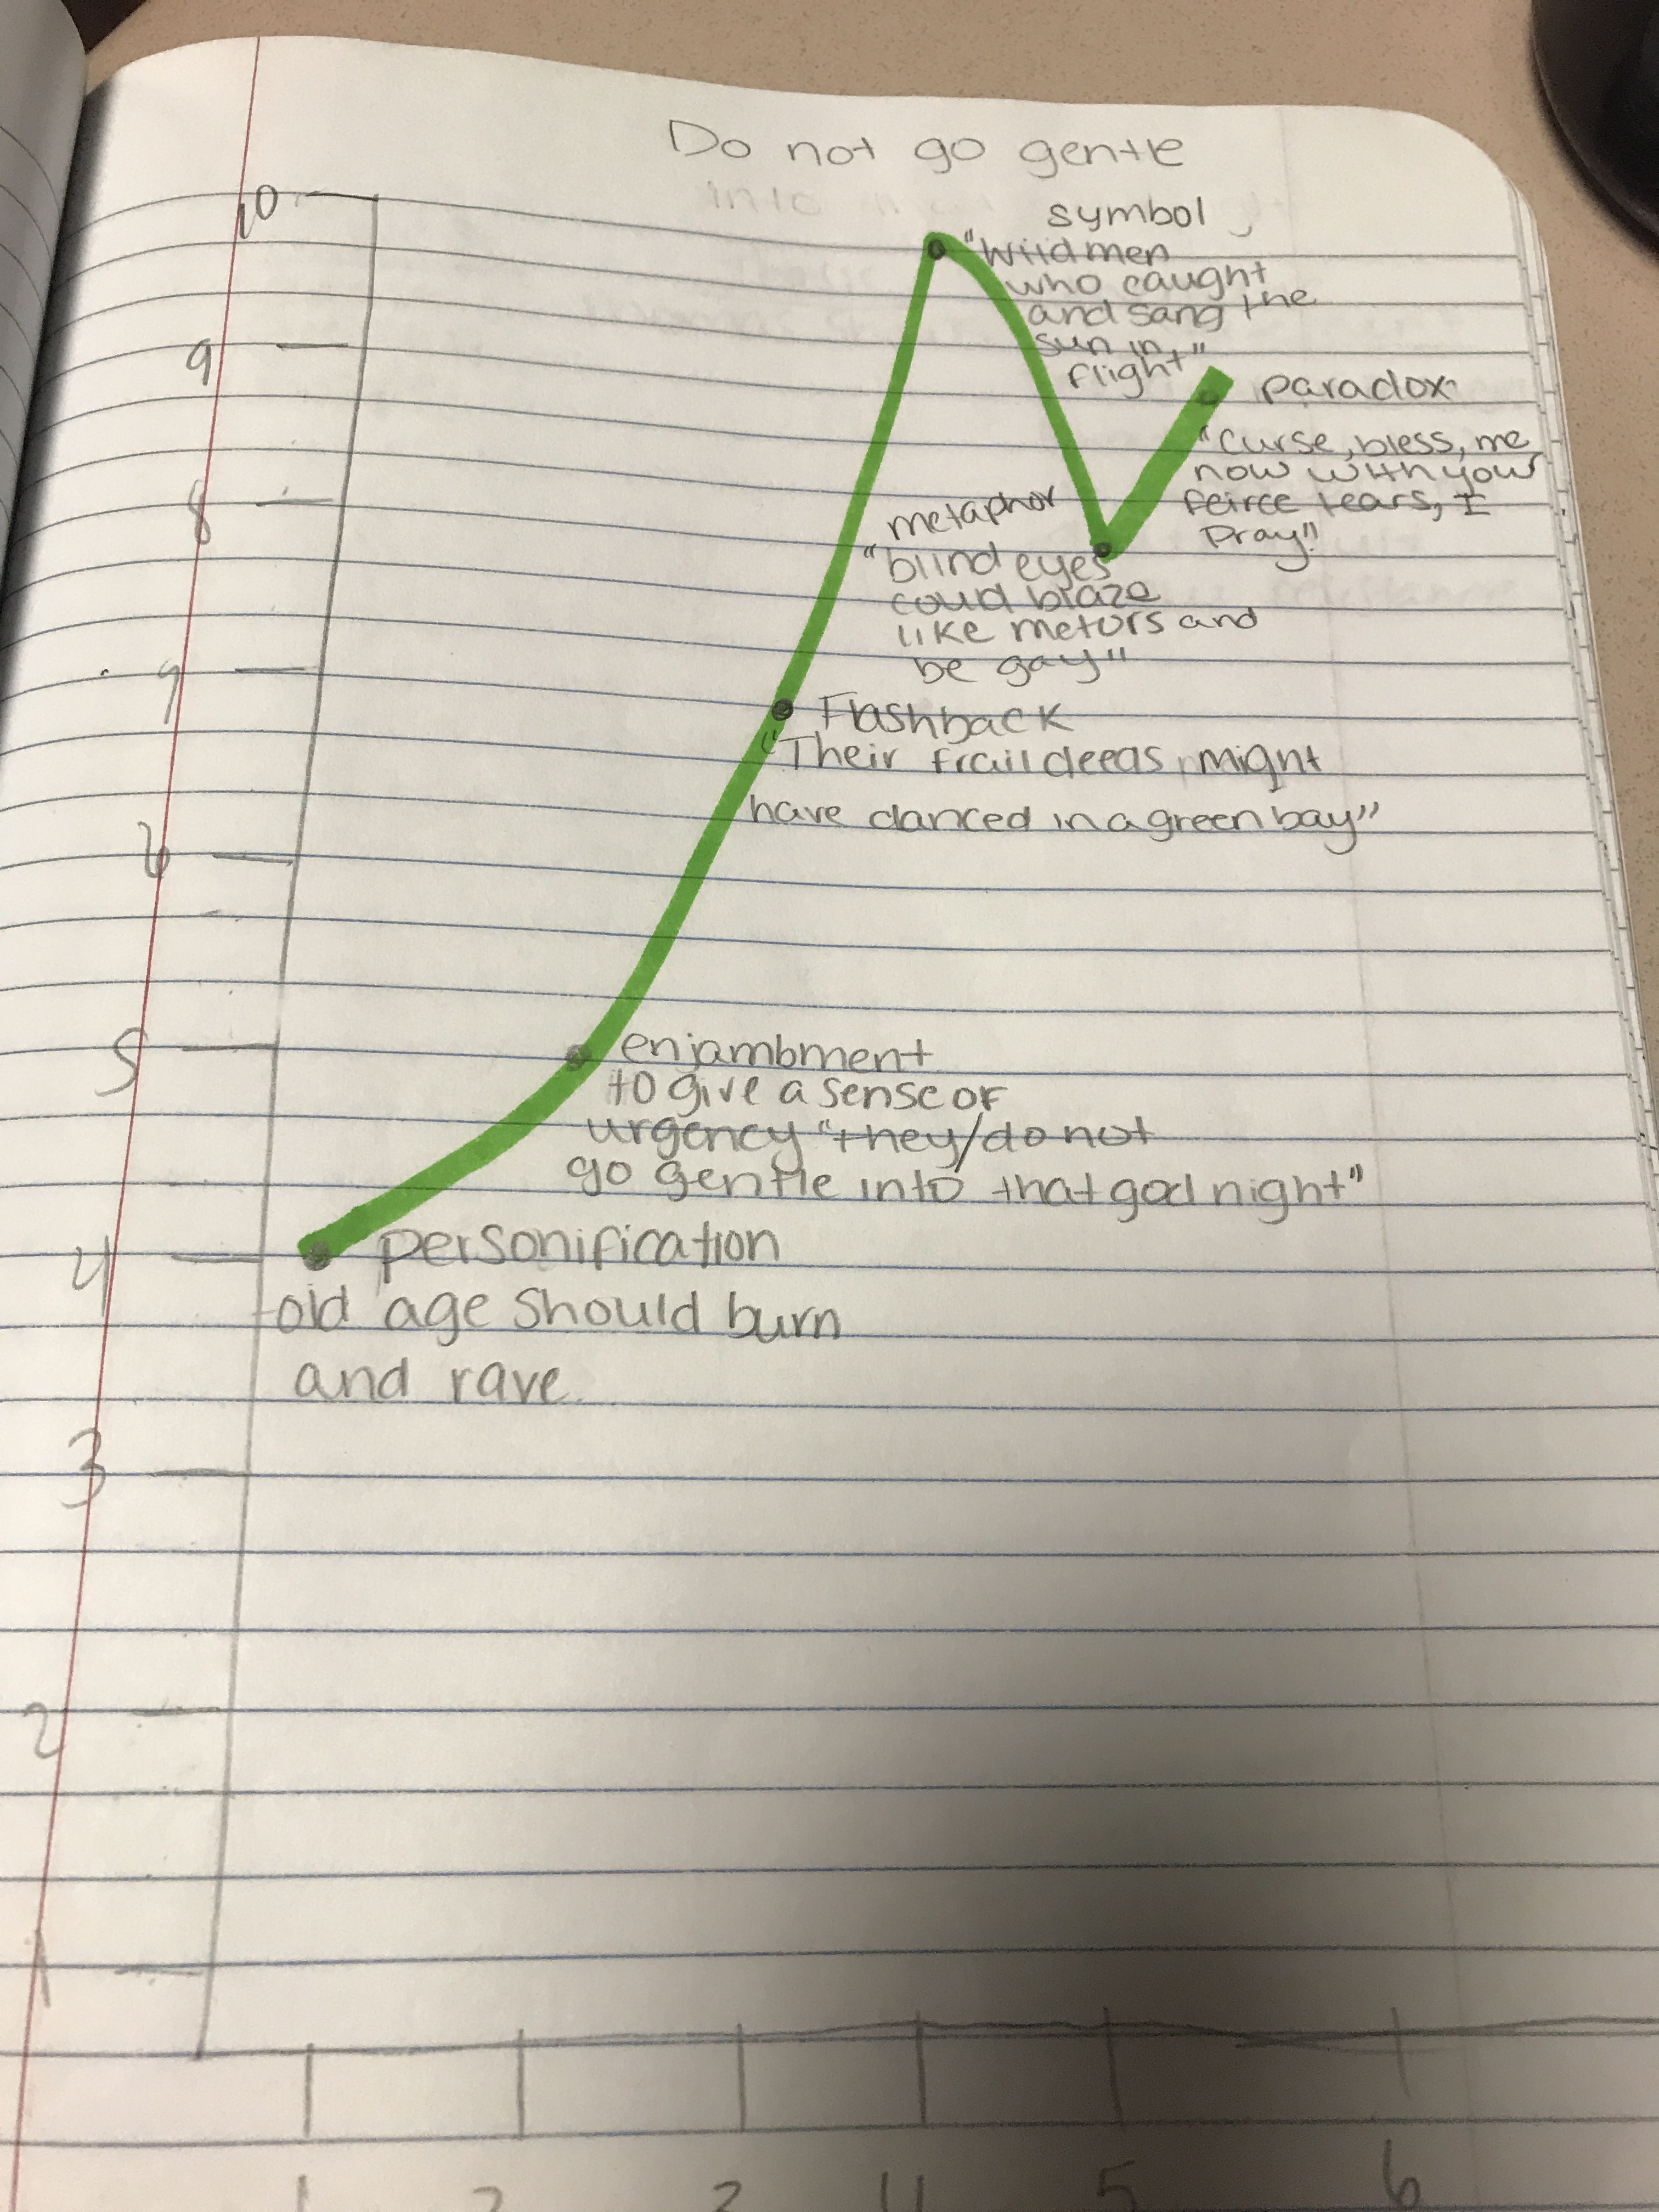 Do not go gentle
into
10
symbol
"Wild men
who caught
and sang the
sun in
flight"
9
paradox
"Curse, bless, me
now with your
feirce tears, I
pray"
8
metaphor
"blind eyes
could blaze
like metors and
be gay"
7
Flashback
"Their frail deeds might
have danced in a green bay"
6
5
enjambment
to give a sense of
urgency "they/do not
go gentle into that god night"
4
personification
old age should burn
and rave.
3
2
1
1 2 3 4 5 6